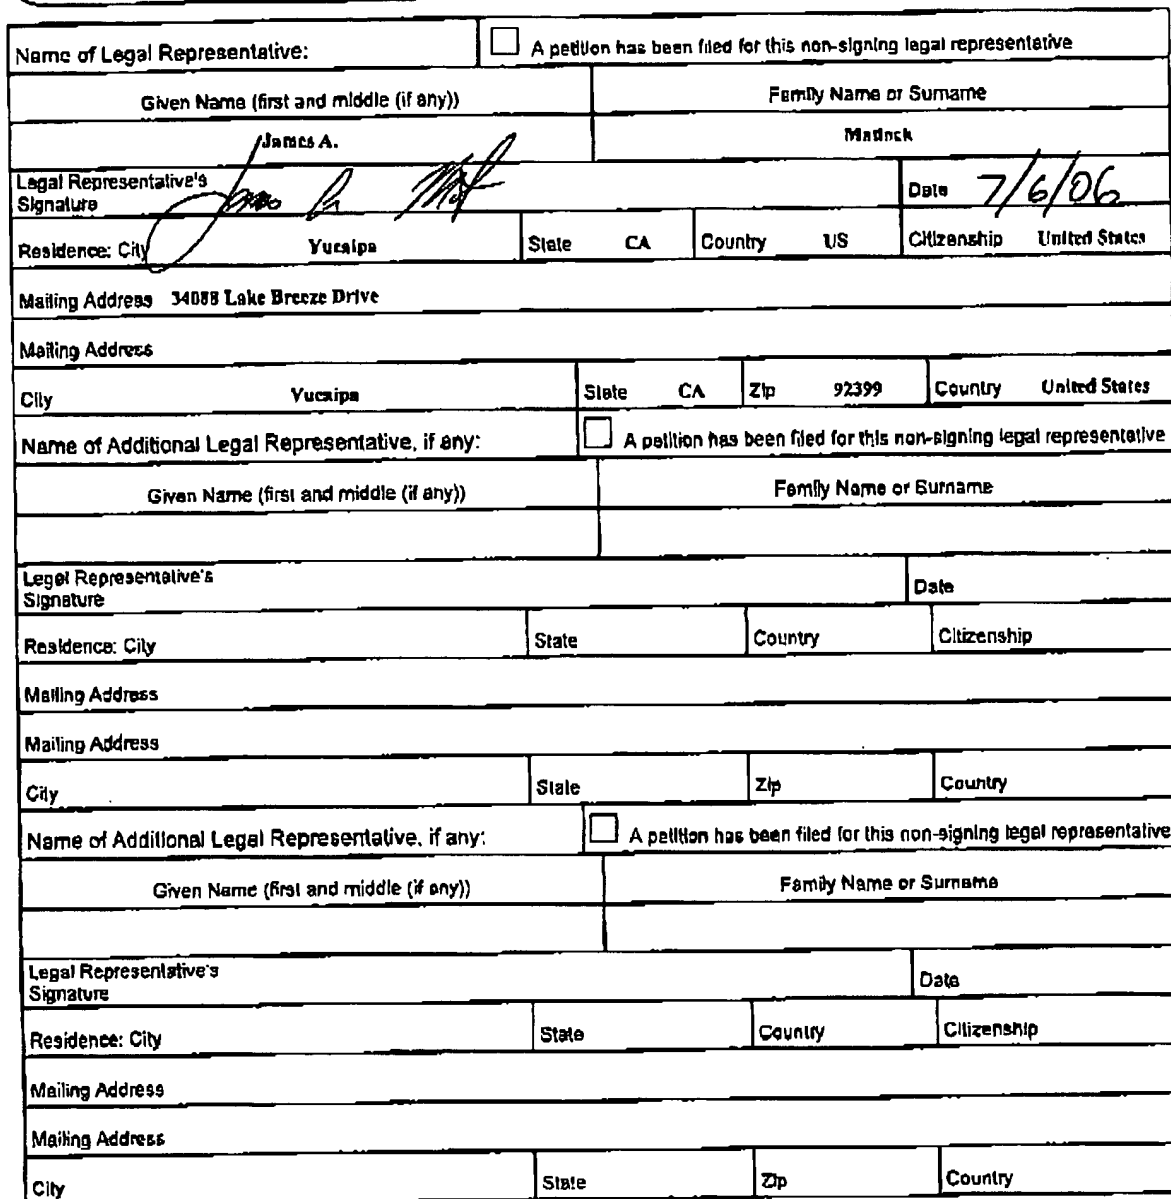 Name of Legal Representative: ☐ A petition has been filed for this non-signing legal representative
Given Name (first and middle (if any)) Family Name or Surname
James A. Matlock
Legal Representative's Signature Date 7/6/06
Residence: City Yucaipa State CA Country US Citizenship United States
Mailing Address 34088 Lake Breeze Drive
Mailing Address
City Yucaipa State CA Zip 92399 Country United States
Name of Additional Legal Representative, if any: ☐ A petition has been filed for this non-signing legal representative
Given Name (first and middle (if any)) Family Name or Surname
Legal Representative's Signature Date
Residence: City State Country Citizenship
Mailing Address
Mailing Address
City State Zip Country
Name of Additional Legal Representative, if any: ☐ A petition has been filed for this non-signing legal representative
Given Name (first and middle (if any)) Family Name or Surname
Legal Representative's Signature Date
Residence: City State Country Citizenship
Mailing Address
Mailing Address
City State Zip Country